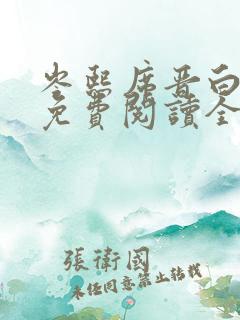 岑熙席晋白
免費閱讀全
張衛國
未经同意禁止转载